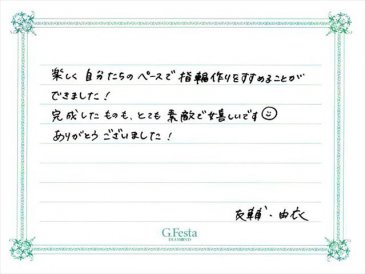 楽しく自分たちのペースで指輪作りをすすめることが
できました!
完成したものも、とても素敵で嬉しいです☺
ありがとうございました!
友輔・由衣
G.Festa
DIAMOND